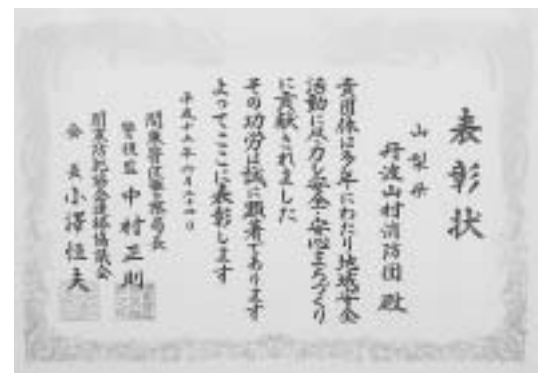 表彰状
山梨県
丹波山村消防団 殿
貴団体は多年にわたり地域安全
活動に尽力し安全・安心まちづくり
に貢献されました
その功労は誠に顕著であります
よってここに表彰します
平成十五年六月二十四日
関東管区警察局長
警視監 中村正則
関東防犯協会連絡協議会
会長 小澤恒夫